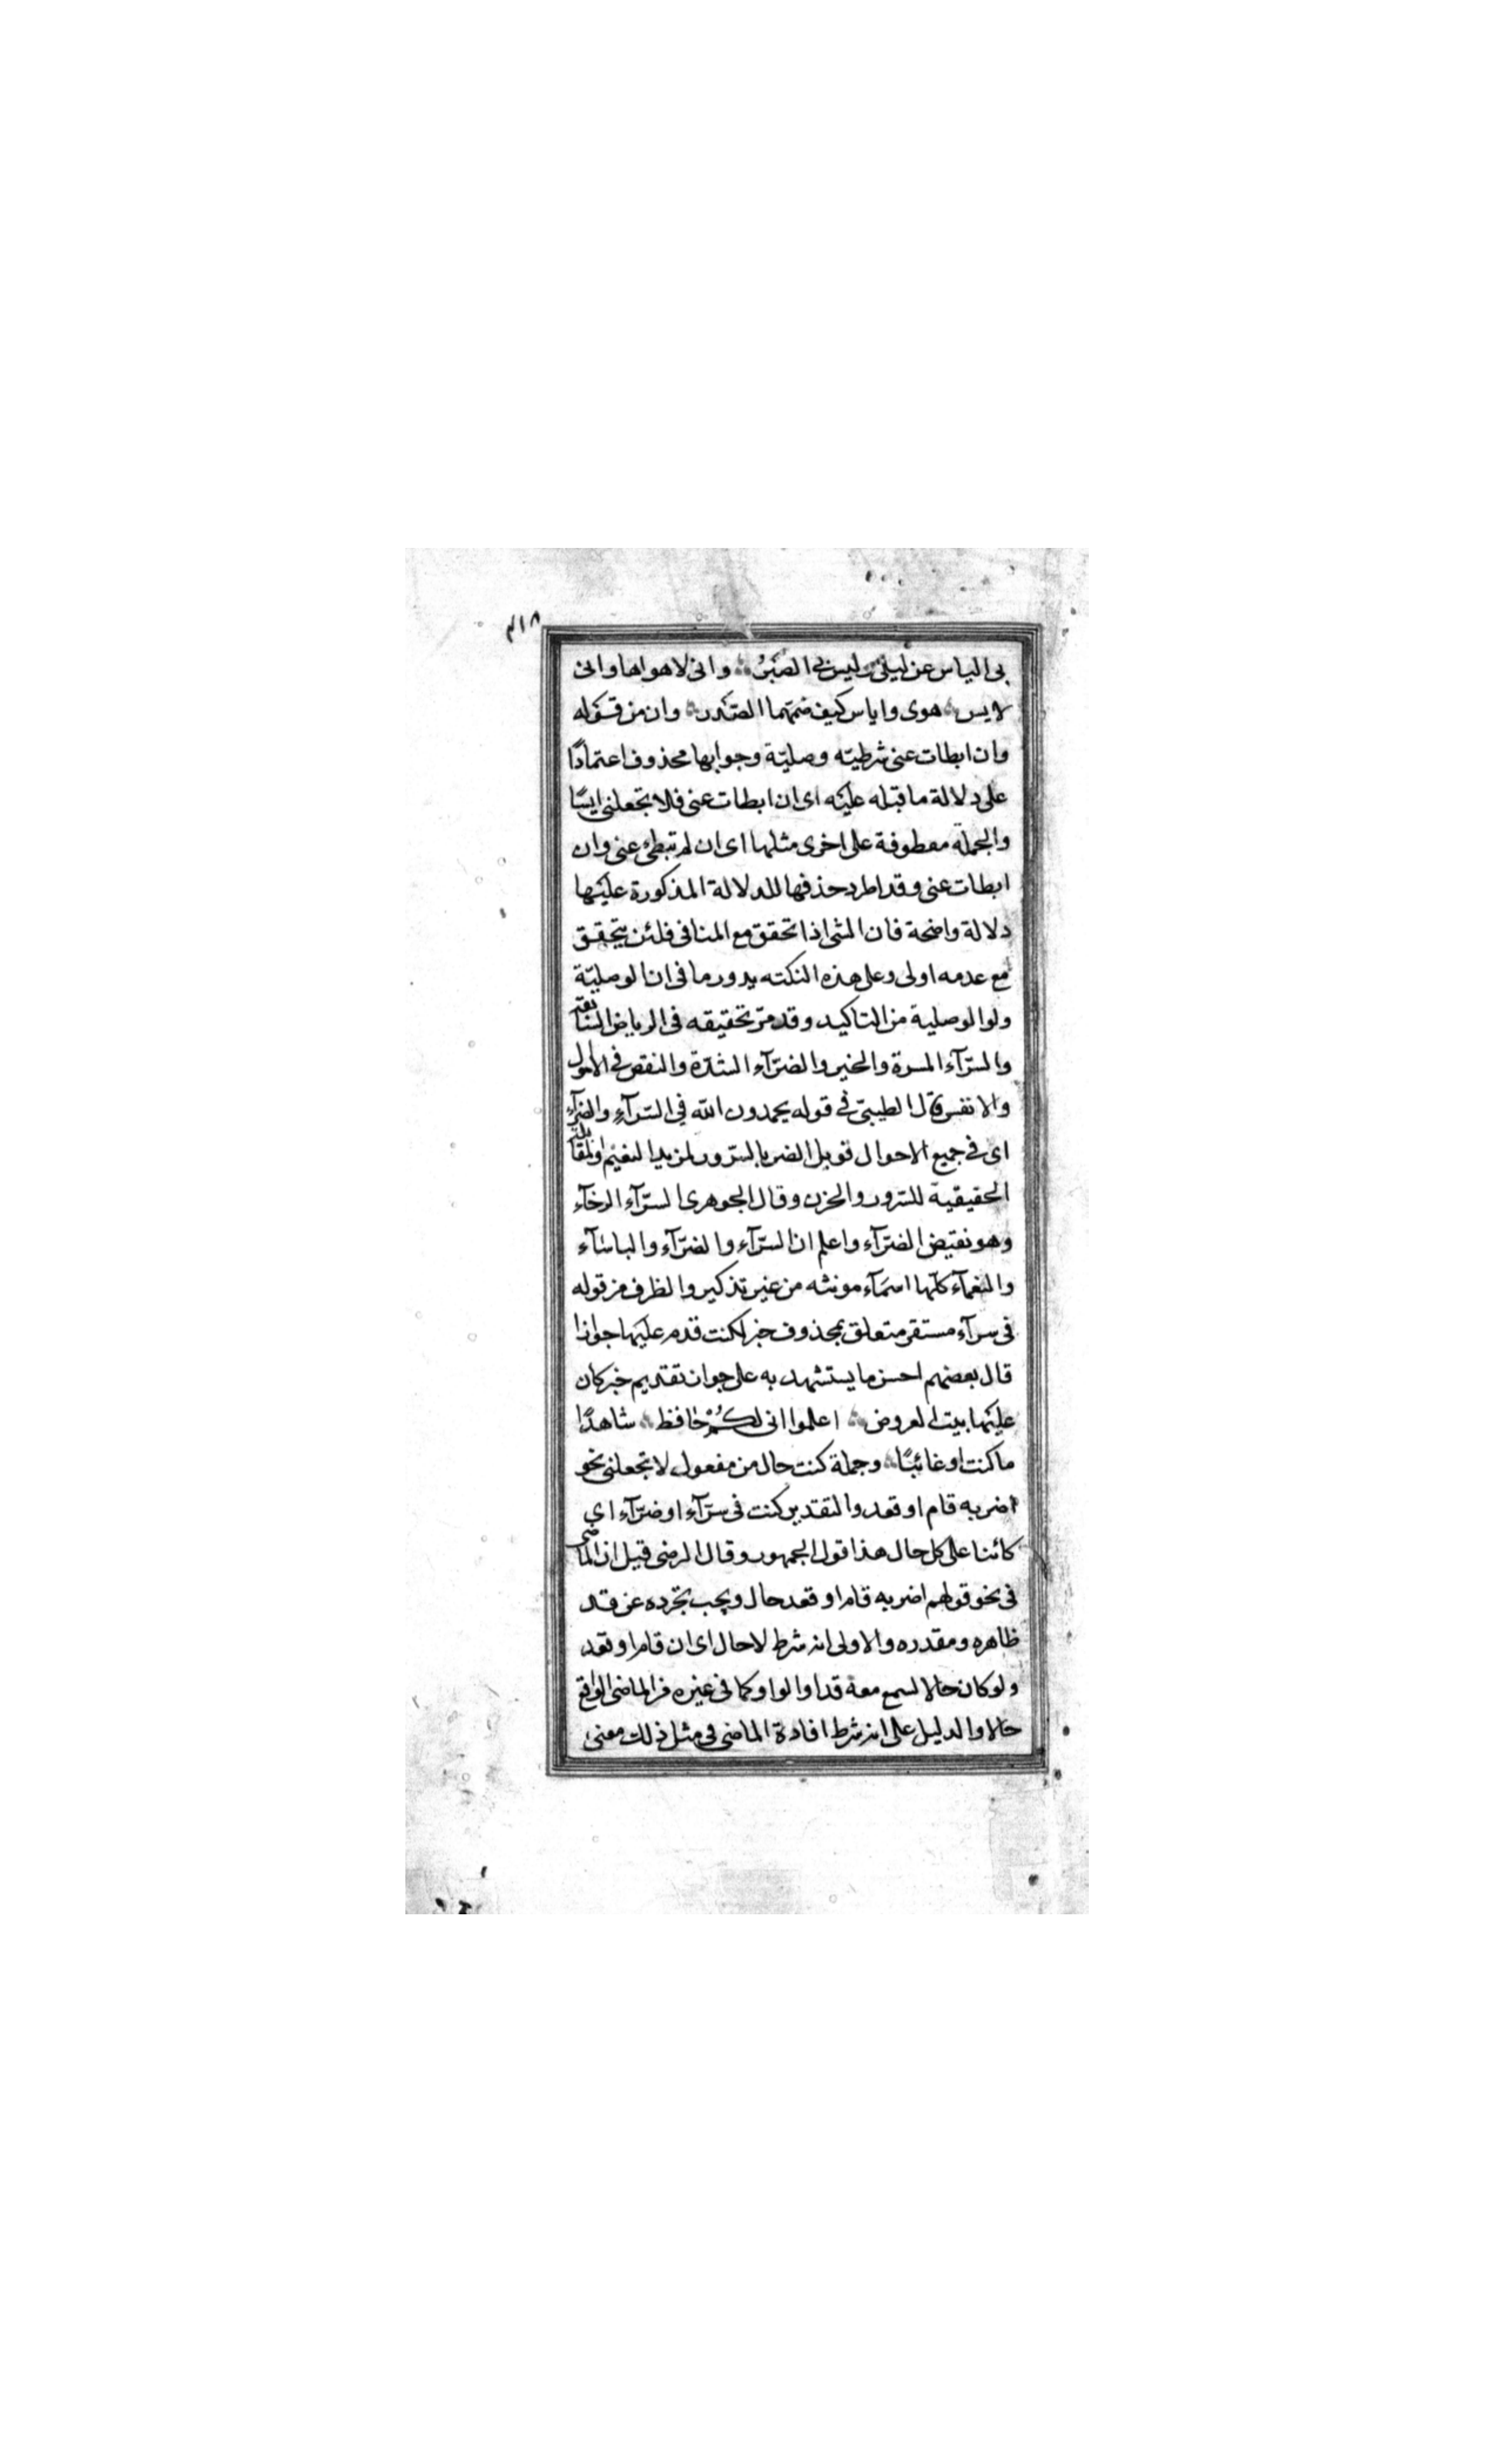 ٤١٨
بى الياس عن ليلى وليس بى الصَّبْرُ واني لاهواها واني
لايس هوى واياس كيف ضمهما الصَّدر وان من قَوْله
وان ابطات عنى شرطيته وصليّة وجوابها محذوف اعتمادًا
على دلالة ما قبله عليْه اى ان ابطات عنى فلا تجعلنى ايسًا
والجملة معطوفة على اخرى مثلها اى ان لم تبطئ عنى وان
ابطات عنى وقد اطرد حذفها للدلالة المذكورة عليْها
دلالة واضحة فان الشى اذا تحقق مع المنافى فلئن يتحقق
مع عدمه اولى وعلى هذه النكته يدور ما فى ان الوصليّة
ولو الوصلية من التاكيد وقد مرّ تحقيقه فى الرياض السّابقة
والسّرآء المسرة والخير والضرّآء الشدّة والنقص فى الاموال
والانفس قال الطيبىّ فى قوله يحمدون الله في السّرآءِ والضرّآءِ
اى فى جميع الاحوال قوبل الضر بالسّرور لمزيد النعيم والمقابلة
الحقيقية للسّرور والحزن وقال الجوهرى السّرآء الرخآء
وهو نقيض الضرّآء واعلم ان السّرآء والضرّآء والباسآء
والنعمآء كلّها اسمَآء مونثه من غير تذكير والظرف من قوله
فى سرآء مستقر متعلق بمحذوف خبر لكنت قدم عليها جوازا
قال بعضهم احسن ما يستشهد به على جواز تقديم خبر كان
عليْها بيت العروض اعلموا انى لكُمْ حافظ شاهدًا
ما كنت او غائبًا وجملة كنت حال من مفعول لا تجعلنى نحو
اضربه قام او قعد والتقدير كنت فى سرّآء او ضرّآء اى
كائنا على كل حال هذا قول الجمهور وقال الرضى قيل ان الماضى
فى نحو قولهم اضربه قام او قعد حال ويجب تجرده عن قد
ظاهره ومقدره والاولى انه شرط لا حال اى ان قام او قعد
ولو كان حالا لسمع معه قد او الواو كما فى غيره من الماضى الواقع
حالا والدليل على انه شرط افادة الماضى فى مثل ذلك معنى